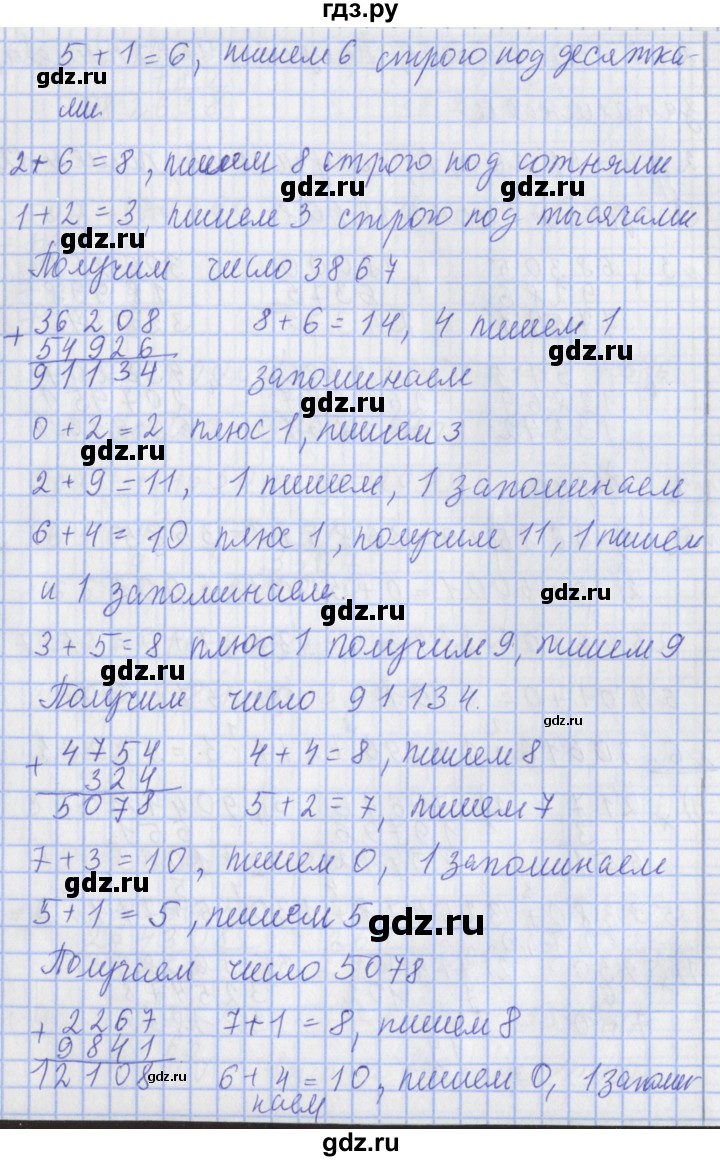 гдз.ру
5 + 1 = 6, пишем 6 строго под десятка-
gdz.ru
ми.
2 + 6 = 8, пишем 8 строго под сотнями
gdz.ru gdz.ru
1 + 2 = 3, пишем 3 строго под тысячами
gdz.ru
Получим число 3867
+ 36208 8 + 6 = 14, 4 пишем 1
54926 gdz.ru
91134 запоминаем
gdz.ru
0 + 2 = 2 плюс 1, пишем 3
gdz.ru
2 + 9 = 11, 1 пишем, 1 запоминаем
6 + 4 = 10 плюс 1, получим 11, 1 пишем
и 1 запоминаем.
gdz.ru gdz.ru
3 + 5 = 8 плюс 1 получим 9, пишем 9
gdz.ru
Получим число 91134.
gdz.ru
+ 4754 4 + 4 = 8, пишем 8
324
5078 5 + 2 = 7, пишем 7
7 + 3 = 10, пишем 0, 1 запоминаем
gdz.ru
5 + 1 = 5, пишем 5
gdz.ru
Получаем число 5078
+ 2267 7 + 1 = 8, пишем 8
9841
12108 gdz.ru 6 + 4 = 10, пишем 0, 1 запоми-
наем
gdz.ru